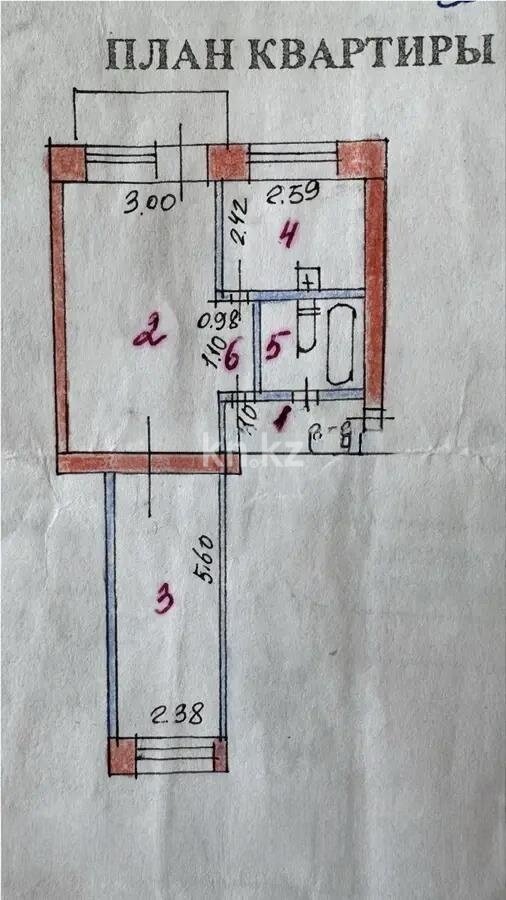 ПЛАН КВАРТИРЫ
3.00
2.59
2.42
4
0.98
2
1.10
6
5
1.10
1
kn.kz
5.60
3
2.38